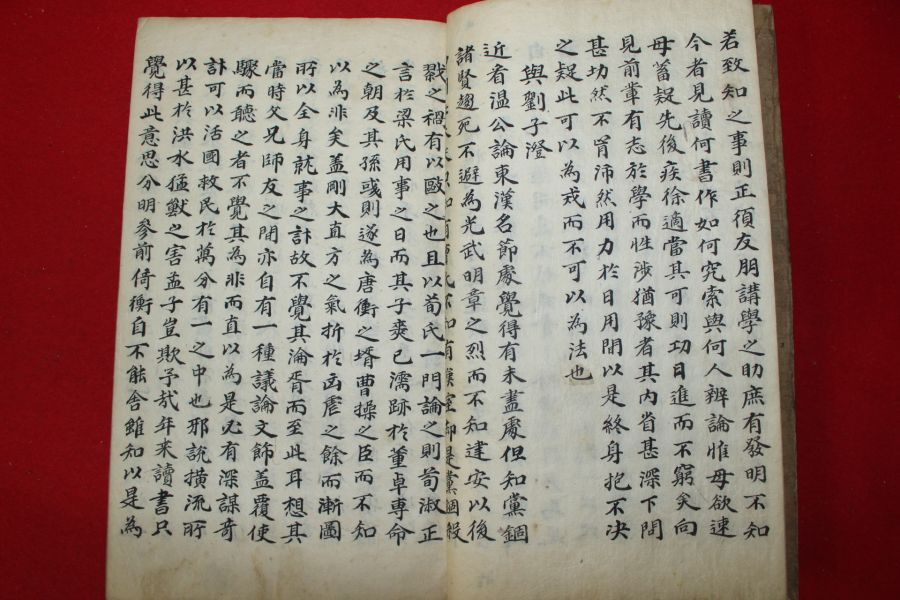 若致知之事則正須友朋講學之助庶有發明不知
今者見讀何書作如何究索與何人辨論惟毋欲速
毋蓄疑先後疾徐適當其可則功日進而不窮矣向
見前輩有志於學而性涉猶豫者其內省甚深下問
甚切然不肯沛然用力於日用間以是終身抱不决
之疑此可以為戒而不可以為法也
與劉子澄
近看溫公論東漢名節處覺得有未盡處但知黨錮
諸賢趨死不避為光武明章之烈而不知建安以後
是黨錮殺
戮之禍有以敺之也且以荀氏一門論之則荀淑正
言於梁氏用事之日而其子爽已濡跡於董卓專命
之朝及其孫彧則遂為唐衡之壻曹操之臣而不知
以為非矣盖剛大直方之氣折於凶虐之餘而漸圖
所以全身就事之計故不覺其淪胥而至此耳想其
當時父兄師友之間亦自有一種議論文飾盖覆使
驟而聽之者不覺其為非而直以為是必有深謀奇
計可以活國救民於萬分有一之中也邪說橫流所
以甚於洪水猛獸之害孟子豈欺予哉年來讀書只
覺得此意思分明參前倚衡自不能舍雖知以是為